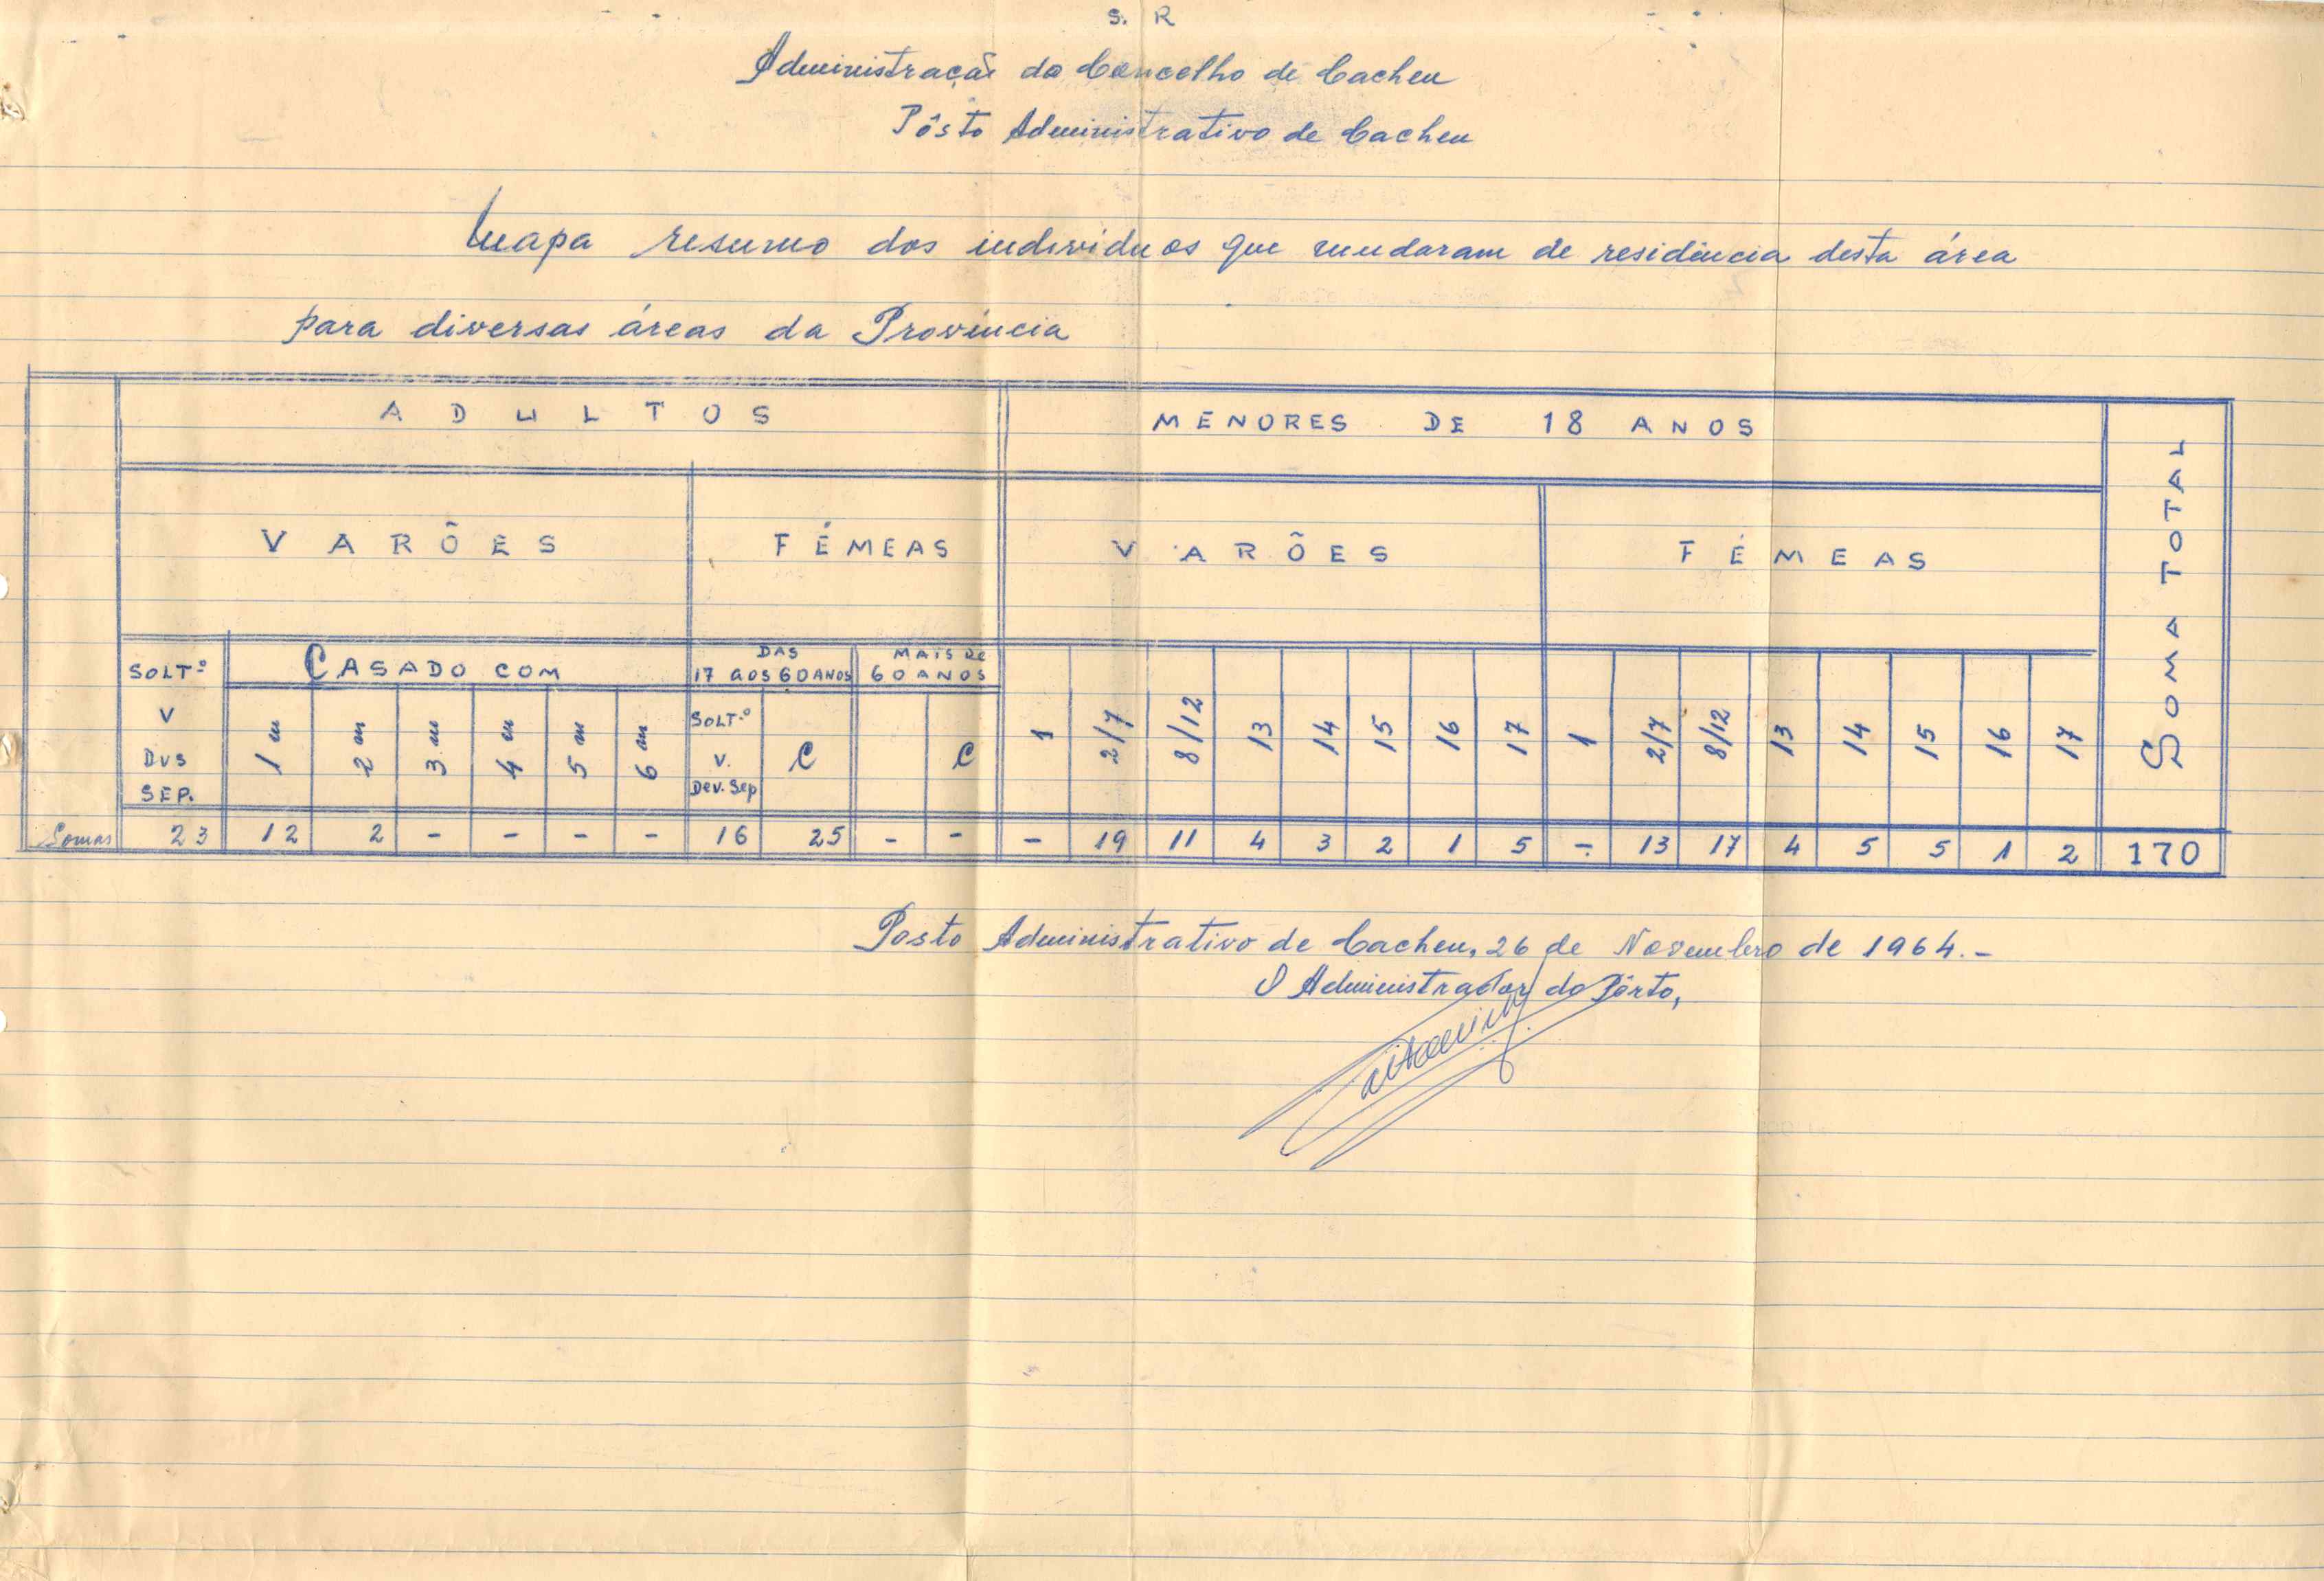 S. R
Administração do Concelho de Cacheu
Pôsto Administrativo de Cacheu
Mapa resumo dos individuos que mudaram de residência desta área
para diversas áreas da Província
ADULTOS MENORES DE 18 ANOS SOMA TOTAL
VARÕES FÉMEAS VARÕES FÉMEAS
SOLTº V DVS SEP. CASADO COM DAS 17 AOS 60 ANOS MAIS DE 60 ANOS
1 m 2 m 3 m 4 m 5 m 6 m SOLT.º V. Dev. Sep C C 1 2/7 8/12 13 14 15 16 17 1 2/7 8/12 13 14 15 16 17
Somas 23 12 2 - - - - 16 25 - - - 19 11 4 3 2 1 5 - 13 17 4 5 5 1 2 170
Posto Administrativo de Cacheu, 26 de Novembro de 1964.-
O Administrador do Pôsto,